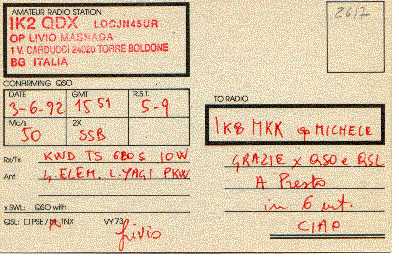 AMATEUR RADIO STATION
IK2 QDX LOCJN45UR
OP LIVIO MASNADA
1 V. CARDUCCI 24020 TORRE BOLDONE
BG ITALIA
2617
CONFIRMING QSO
DATE GMT R.S.T.
3-6-92 15 51 5-9
Mc/s 2X
50 SSB
TO RADIO
IK8 MKK op MICHELE
Rx/Tx KWD TS 680 S 10W
Ant 4 ELEM. L. YAGI PKW
GRAZIE x QSO e QSL
A Presto
in 6 mt.
CIAO
x SWL: QSO with
QSL: PSE / TNX VY73
Livio